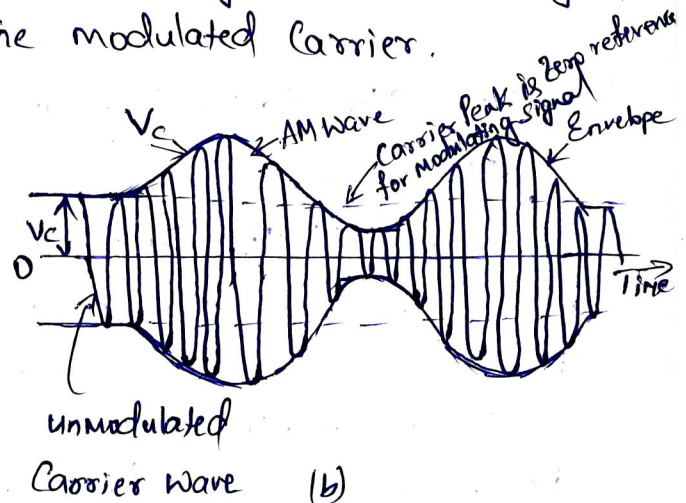 he modulated Carrier.
Vc
AM Wave
Carrier Peak is Zero reference
for Modulating Signal
Envelope
Vc
0
Time
unmodulated
Carrier Wave (b)